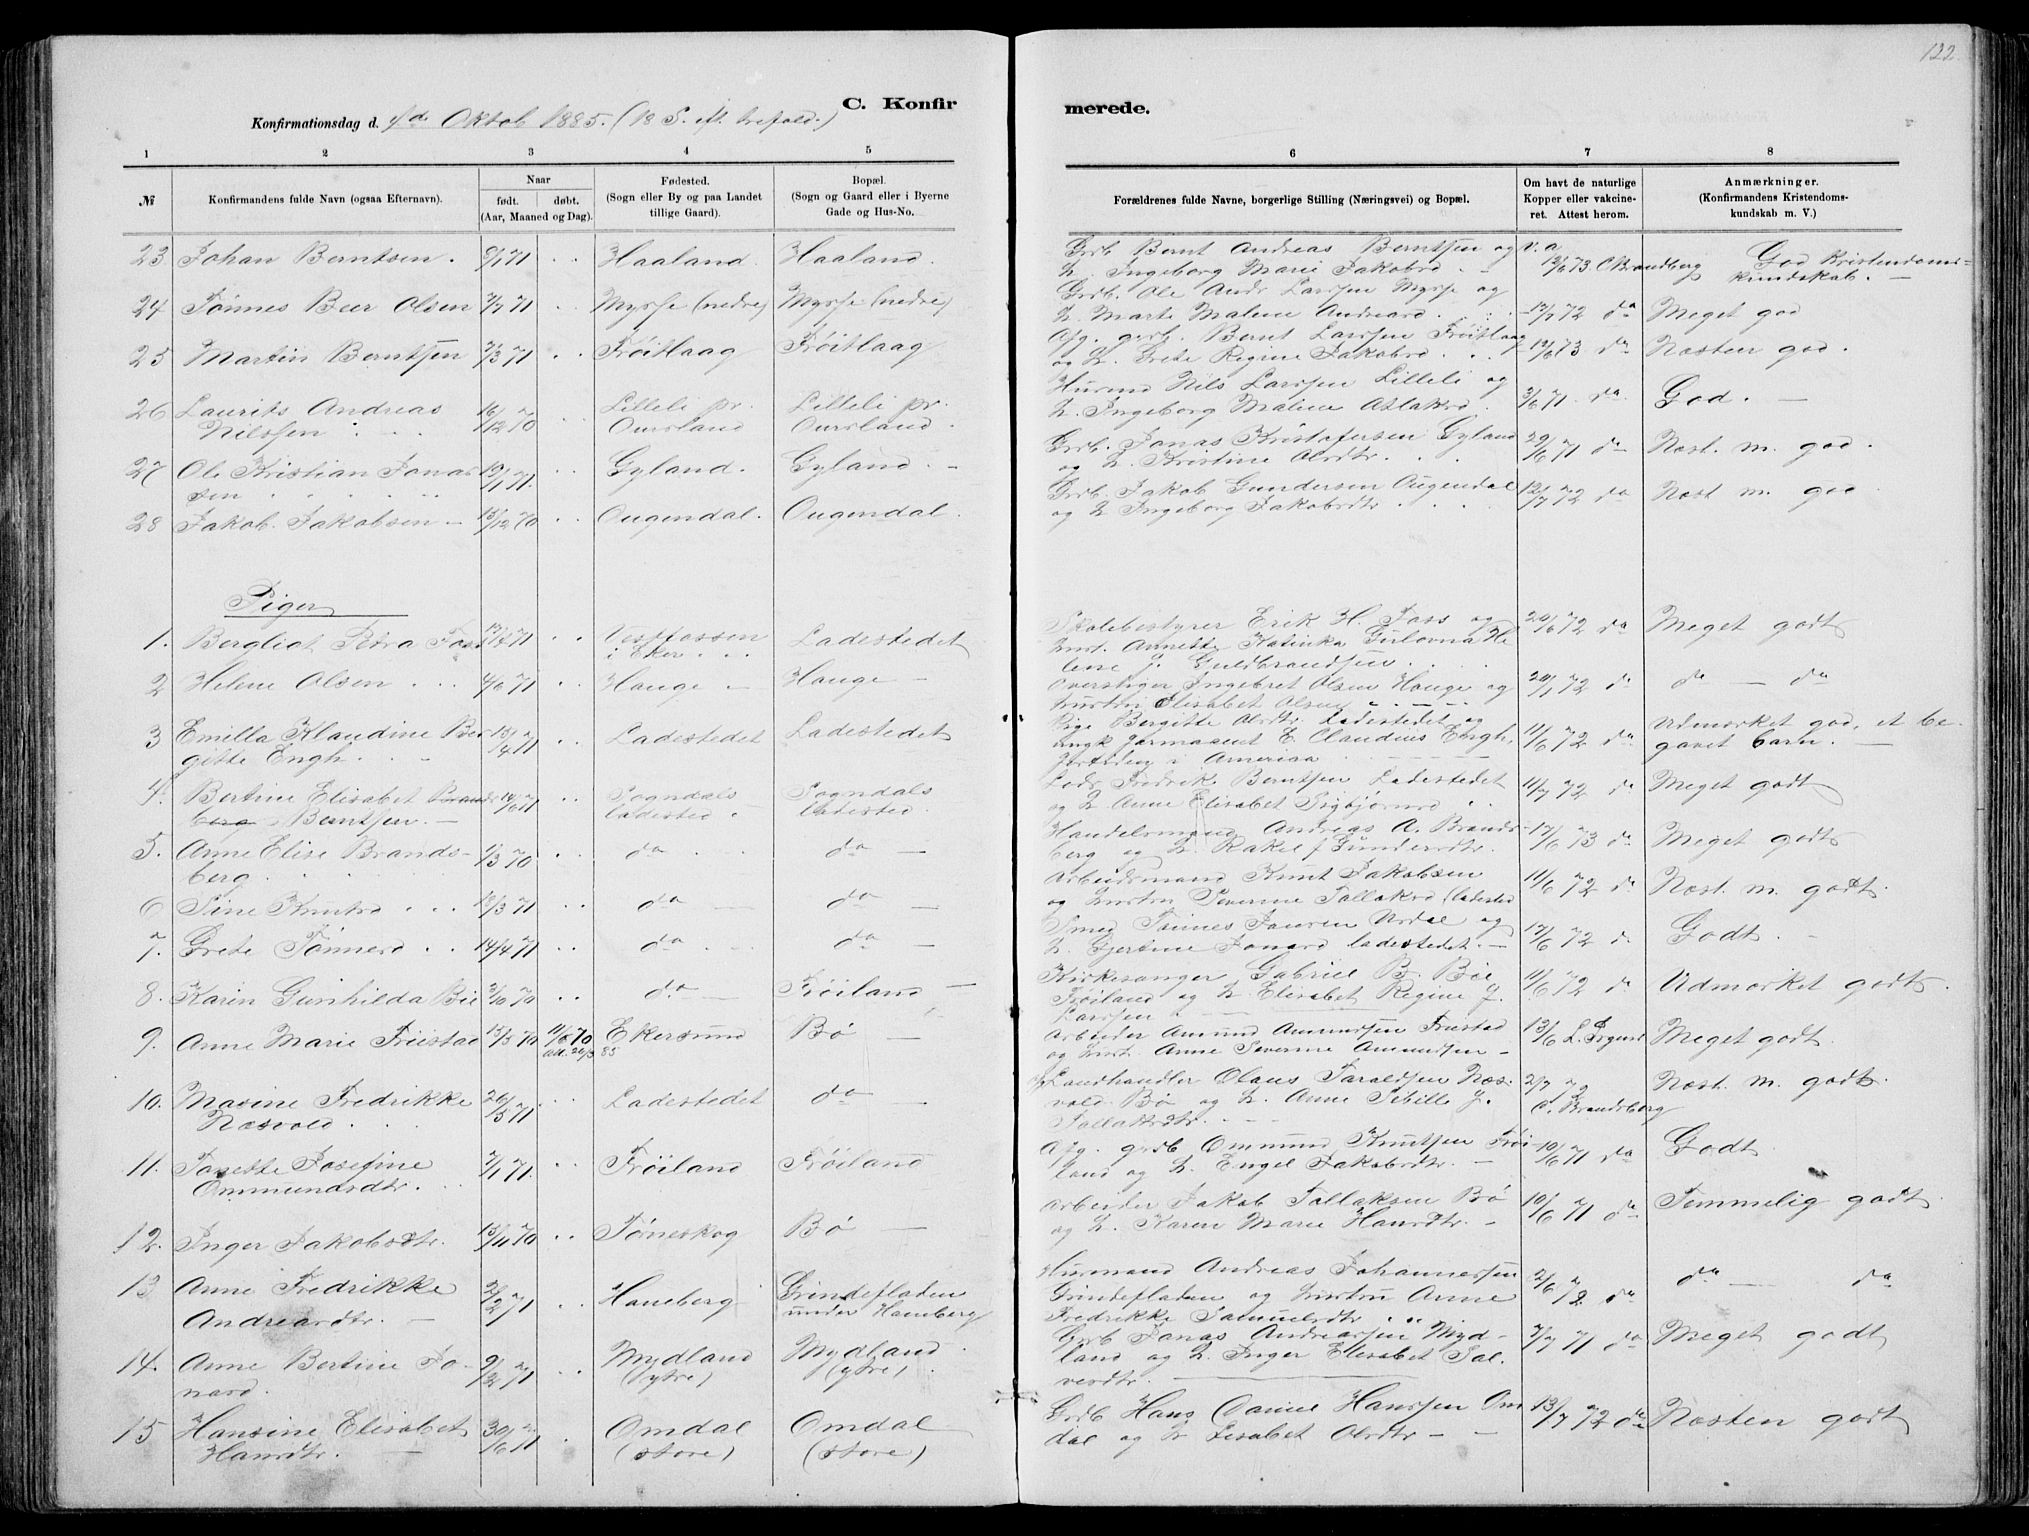 122
C. Konfirmerede.
Konfirmationsdag d. 4de Oktob 1885. (18 S. eft. trefold.)
1 2 3 4 5 6 7 8
№
Konfirmandens fulde Navn (ogsaa Efternavn).
Naar
født. døbt.
(Aar, Maaned og Dag).
Fødested.
(Sogn eller By og paa Landet
tillige Gaard).
Bopæl.
(Sogn og Gaard eller i Byerne
Gade og Hus-No.
Forældrenes fulde Navne, borgerlige Stilling (Næringsvei) og Bopæl.
Om havt de naturlige
Kopper eller vakcine-
ret. Attest herom.
Anmærkninger.
(Konfirmandens Kristendoms-
kundskab m. V.)
23 Johan Berntsen. 9/1 71 Haaland. Haaland. Grdb Bernt Andreas Berntsen og v: a
H. Ingeborg Marie Jakobsd 12/6 73 C Brandberg God Kristendoms-
kundskab. –
24 Tønnes Beer Olsen 7/7 71 Mysse (nedre) Mysse (nedre) Grdb. Ole Andr Larssen Mysse og
H. Marte Malene Andreasd 12/7 72 da Meget god
25 Martin Berntsen 7/3 71 Frøitlaag Frøitlaag Afg. grdb. Bernt Larssen Frøitlaag
og H. Grete Regine Jakobsd 12/6 73 da Næsten god.
26 Laurits Andreas
Nilssen 16/12 70 Lilleli pr. Oursland Lilleli pr. Oursland. Husmd Nils Larssen Lilleli og
H. Ingeborg Malene Aslaksd. 3/6 71. da. God. –
27 Ole Kristian Jonas
sen 12/1 71. Gyland. Gyland. – Grdb. Jonas Kristofersen Gyland
og H. Kristine Olsdtr. 29/6 71 da Næst. m. god
28 Jakob Jakobsen – 15/12 70 Ougendal. Ougendal. Grdb. Jakob Gundersen Ougendal
og H Ingeborg Jakobsdtr 12/7 72 da Næst m. god
Piger
1. Bergliot Petra Foss 17/7 71 Vestfossen
i Eker Ladestedet Skolebestyrer Erik H. Foss og
Hust. Annette Katinka Gulovna He
lene J. Guldbrandsen 20/6 72 da Meget godt
2 Helene Olsen 4/6 71 Hauge – Hauge – Overstiger Ingebret Olsen Hauge og
hustru Elisabet Olsen 20/1 72 da da – da
3 Emilla Klaudine Ber
gitte Engh. 13/4 71 Ladestedet Ladestedet Pige Bergitte Olsdtr. Ladestedet og
ungk. Claudius Engh,
i Amerika 11/6 72 da Udmærket god, et be-
gavet barn. –
4. Bertine Elisabet Brands
berg Berntsen. – 14/6 71 Sogndals
ladested Sogndals
ladested Lods Fredrik Berntsen Ladestedet
og H. Anne Elisabet Sigbjørnsd 11/7 72 da Meget godt
5. Anne Elise Brands-
berg. 1/3 70 da da – Handelsmand Andreas A. Brands-
berg og H. Rakel Gundersdtr. 17/6 73 da Meget godt
6 Sine Knutsd 18/3 71 da – da – Arbeidsmand Knut Jakobsen
og hustru Severine Tallaksd (ladested 11/6 72 da Næst. m. godt.
7. Grete Tønnesd 14/4 71 da da – Smed Tønnes Jansen Urdal og
H. Gjertine Jonasd ladestedet. – 17/6 72 da Godt. –
8. Karin Gunhilda Bøe 3/10 70 da – Frøiland – Kirkesanger Gabriel B. Bøe
Frøiland og H. Elisabet Regine J.
Larssen 11/6 72 da Udmærket godt.
9. Anne Marie Friestad 15/3 70 11/6 70
att. 20/3 85 Ekersund Bø – Arbeider Amund Amundsen Friestad
og hust. Anne Severine Amundsen – 13/6 Meget godt.
10. Masine Fredrikke
Næsvold 26/5 71 Ladestedet da Landhandler Olaus Taraldsen Næs-
vold Bø og H. Anne Sibille J.
Tallaksdtr. 2/7 72
C. Brandsberg Næst. m. godt.
11. Tonette Josefine
Ommundsdtr. 7/1 71. Frøiland Frøiland Afg. grdb Ommund Knutsen Frøi
land og H. Engel Jakobsdtr. – 10/6 71 da Godt
12. Inger Jakobsdtr. 15/11 70 Tøneskog Bø – Arbeider Jakob Tallaksen Bø
og H. Karen Marie Hansdtr. – 10/6 71 da Temmelig godt
13 Anne Fredrikke
Andreasdtr. – 2/2 71 Haneberg Grindefladen
under Haneberg Husmand Andreas Johannessen
Grindefladen og hustru Anne
Fredrikke Samuelsdtr 2/6 72 da da – da
14. Anne Bertine Jo-
nasd. 9/2 71 Mydland
(ytre) Mydland
(ytre) Grdb Jonas Andreassen Myd-
land og H. Inger Elisabet Sal-
vesdtr. 7/7 71 da Meget godt
15 Hansine Elisabet
Hansdtr. – 30/6 71 Omdal
(store) Omdal
(store) Grdb Hans Daniel Hanssen Om
dal og H Lisabet Olsdtr – – 13/7 72 da Næsten godt